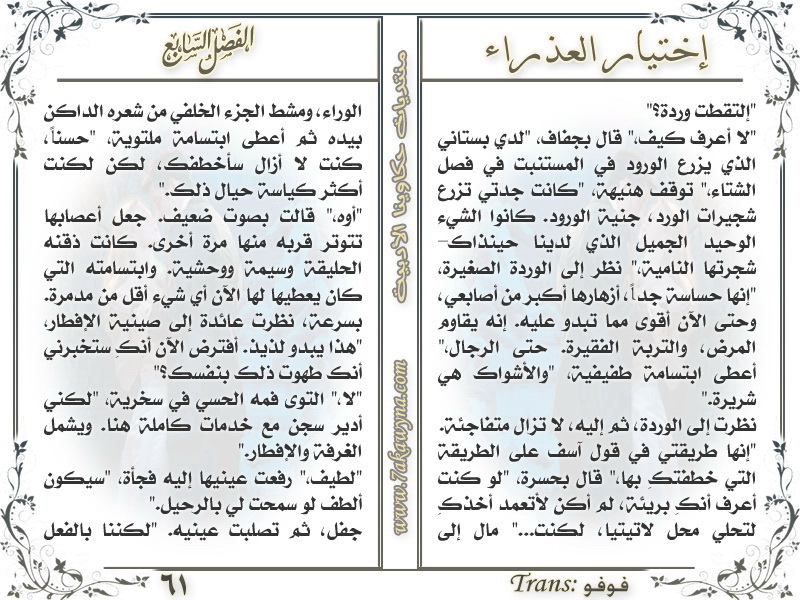 إختيار العذراء
"إلتقطت وردة؟"
"لا أعرف كيف،" قال بجفاف، "لدي بستاني
الذي يزرع الورود في المستنبت في فصل
الشتاء،" توقف هنيهة، "كانت جدتي تزرع
شجيرات الورد، جنية الورود. كانوا الشيء
الوحيد الجميل الذي لدينا حينذاك–
شجرتها النامية،" نظر إلى الوردة الصغيرة،
"إنها حساسة جداً، أزهارها أكبر من أصابعي،
وحتى الآن أقوى مما تبدو عليه. إنه يقاوم
المرض، والتربة الفقيرة. حتى الرجال،"
أعطى ابتسامة طفيفية، "والأشواك هي
شريرة."
نظرت إلى الوردة، ثم إليه، لا تزال متفاجئة.
"إنها طريقتي في قول آسف على الطريقة
التي خطفتكِ بها،" قال بحسرة، "لو كنت
أعرف أنكِ بريئة، لم أكن لأتعمد أخذكِ
لتحلي محل لاتيتيا، لكنت..." مال إلى
Trans: فوفو
منتديات حكاوينا الادبية
www.7akawyna.com
الفصل السابع
الوراء، ومشط الجزء الخلفي من شعره الداكن
بيده ثم أعطى ابتسامة ملتوية، "حسناً،
كنت لا أزال سأخطفك، لكن لكنت
أكثر كياسة حيال ذلك."
"أوه،" قالت بصوت ضعيف. جعل أعصابها
تتوتر قربه منها مرة أخرى. كانت ذقنه
الحليقة وسيمة ووحشية. وابتسامته التي
كان يعطيها لها الآن أي شيء أقل من مدمرة.
بسرعة، نظرت عائدة إلى صينية الإفطار،
"هذا يبدو لذيذ. أفترض الآن أنكِ ستخبرني
أنك طهوت ذلك بنفسك؟"
"لا،" التوى فمه الحسي في سخرية، "لكني
أدير سجن مع خدمات كاملة هنا. ويشمل
الغرفة والإفطار."
"لطيف،" رفعت عينيها إليه فجأة، "سيكون
ألطف لو سمحت لي بالرحيل."
جفل، ثم تصلبت عينيه. "لكننا بالفعل
٦١